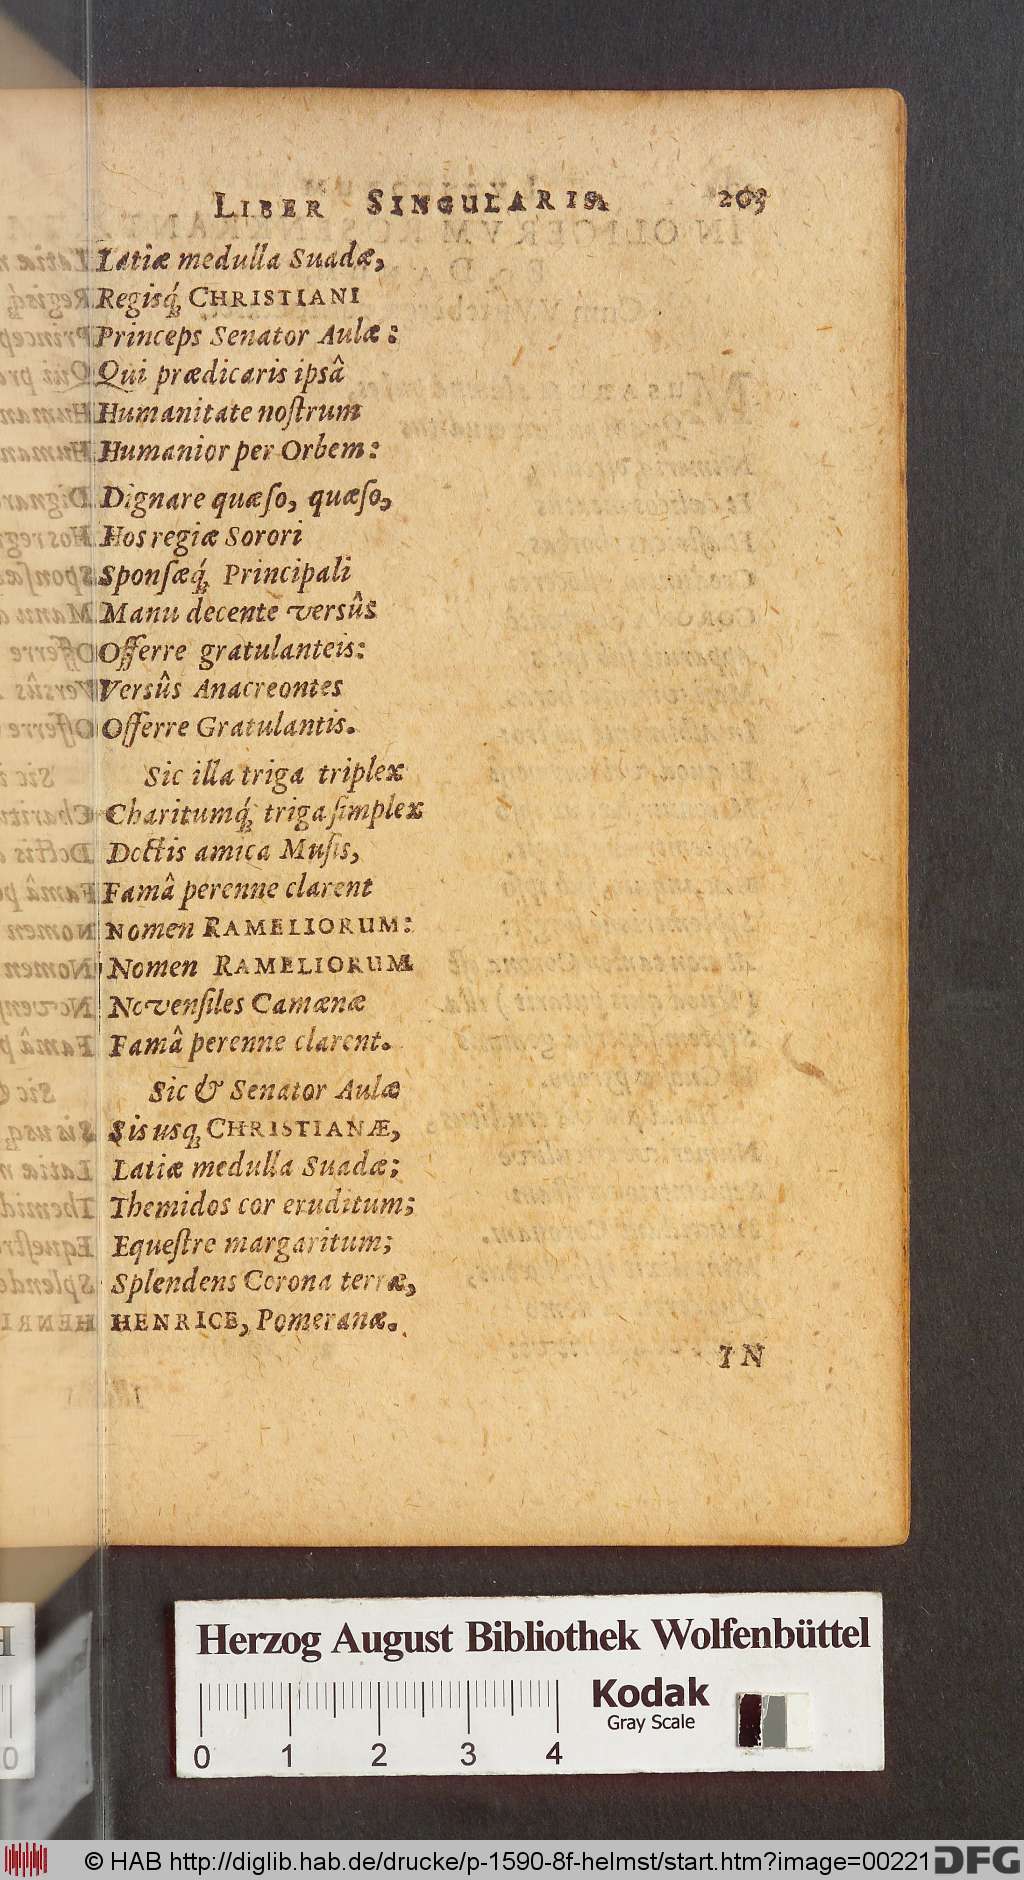 LIBER SINGULARIS. 203
Latiæ medulla Suadæ,
Regisq́ꝫ CHRISTIANI
Princeps Senator Aulæ:
Qui prædicaris ipsâ
Humanitate noſtrum
Humanior per Orbem:
Dignare quæſo, quæſo,
Hos regiæ Sorori
Sponſæq́ꝫ Principali
Manu decente versûs
Offerre gratulanteis:
Versûs Anacreontes
Offerre Gratulantis.
Sic illa triga triplex
Charitumq́ꝫ triga ſimplex
Doctis amica Muſis,
Famâ perenne clarent
Nomen RAMELIORUM:
Nomen RAMELIORUM
Novenſiles Camænæ
Famâ perenne clarent.
Sic & Senator Aulæ
Sis usqꝫ CHRISTIANÆ,
Latiæ medulla Suadæ;
Themidos cor eruditum;
Equeſtre margaritum;
Splendens Corona terræ,
HENRICE, Pomeranæ.
IN
Herzog August Bibliothek Wolfenbüttel
Kodak
Gray Scale
0 1 2 3 4
© HAB http://diglib.hab.de/drucke/p-1590-8f-helmst/start.htm?image=00221
DFG